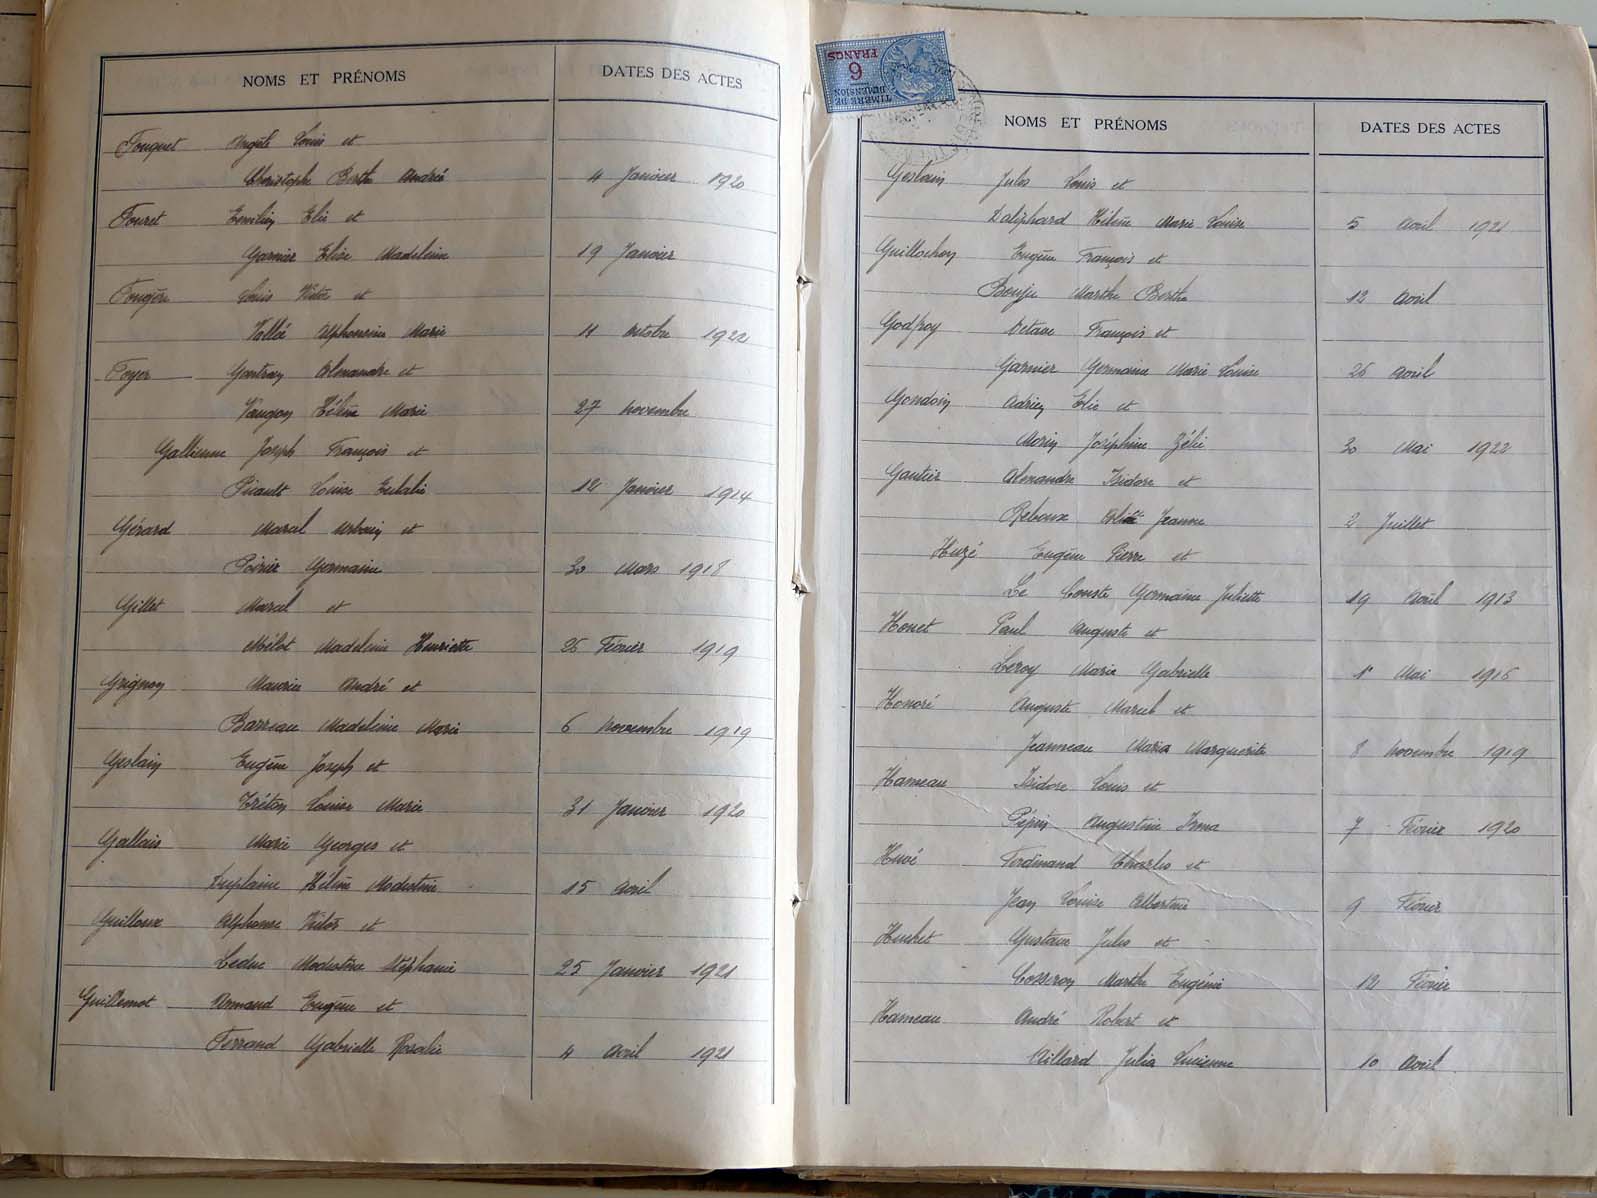 NOMS ET PRÉNOMS DATES DES ACTES
Fouquet Auguste Louis et
Christophe Berthe Andrée 4 Janvier 1920
Fouret Emilien Elie et
Garnier Elise Madeleine 19 Janvier
Fougère Louis Victor et
Vallée Alphonsine Marie 11 Octobre 1922
Foyer Gontran Alexandre et
Vaugon Hélène Marie 27 Novembre
Gallienne Joseph François et
Picault Louise Eulalie 12 Janvier 1914
Gérard Marcel Urbain et
Poirier Germaine 30 Mars 1918
Gillet Marcel et
Mélot Madeleine Henriette 26 Février 1919
Grignon Maurice André et
Barreau Madeleine Marie 6 Novembre 1919
Geslain Eugène Joseph et
Tréton Louise Marie 31 Janvier 1920
Gallais Marie Georges et
Hélène Modestine 15 Avril
Guilloux Alphonse Victor et
Leduc Modestine Stéphanie 25 Janvier 1921
Guillemot Armand Eugène et
Ferrand Gabrielle Rosalie 4 Avril 1921
6 FRANCS
TIMBRE DE DIMENSION
NOMS ET PRÉNOMS DATES DES ACTES
Geslain Jules Louis et
Daliphard Hélène Marie Louise 5 Avril 1921
Guillochon Eugène François et
Bouju Marthe Berthe 12 Avril
Godfroy Octave François et
Garnier Germaine Marie Louise 26 Avril
Gondoin Adrien Elie et
Morin Joséphine Zélie 30 Mai 1922
Gautier Alexandre Isidore et
Reboux Jeanne 2 Juillet
Huzé Eugène Pierre et
Le Conste Germaine Juliette 19 Avril 1913
Houet Paul Auguste et
Leroy Marie Gabrielle 1er Mai 1916
Honoré Auguste Marcel et
Jeanneau Maria Marguerite 8 Novembre 1919
Hameau Isidore Louis et
Pépin Augustine Irma 7 Février 1920
Huvé Ferdinand Charles et
Jean Louise Albertine 9 Février
Huchet Gustave Jules et
Cosseron Marthe Eugénie 12 Février
Hameau André Robert et
Villard Julia Lucienne 10 Avril